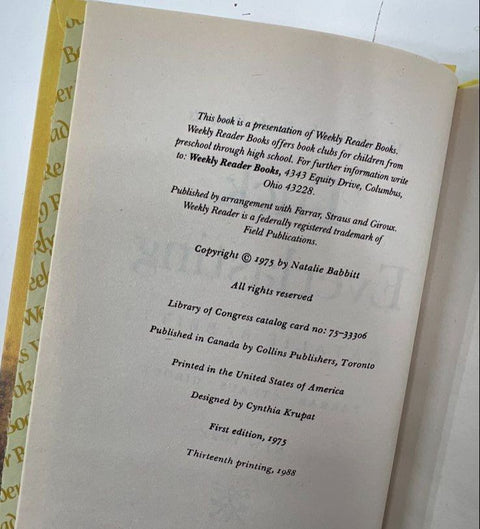 This book is a presentation of Weekly Reader Books.
Weekly Reader Books offers book clubs for children from
preschool through high school. For further information write
to: Weekly Reader Books, 4343 Equity Drive, Columbus,
Ohio 43228.
Published by arrangement with Farrar, Straus and Giroux.
Weekly Reader is a federally registered trademark of
Field Publications.
Copyright © 1975 by Natalie Babbitt
All rights reserved
Library of Congress catalog card no: 75-33306
Published in Canada by Collins Publishers, Toronto
Printed in the United States of America
Designed by Cynthia Krupat
First edition, 1975
Thirteenth printing, 1988